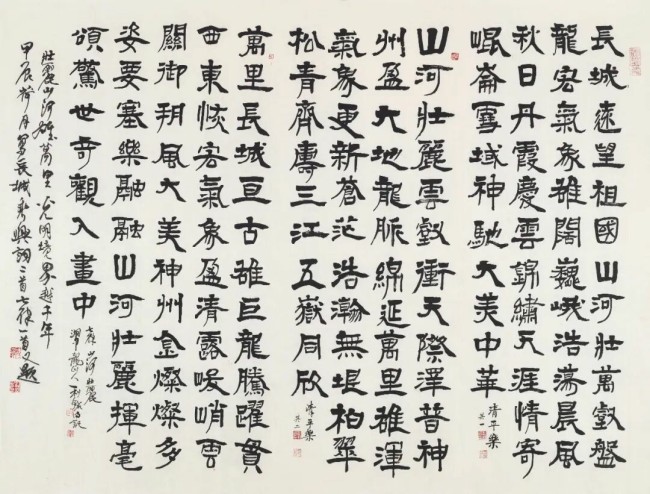 長城遠望祖國山河壯萬壑盤
龍宏氣象雄闊巍峨浩蕩晨風
秋日丹霞慶雲錦繡天涯情寄
崐崙雪域神馳大美中華
清平樂
其一
山河壯麗雲壑衝天際澤普神
州盈大地龍脈綿延萬里雄渾
氣象更新蒼茫浩瀚無垠柏翠
松青齊專三江五嶽同欣
清平樂
其二
萬里長城亘古雄巨龍騰躍貫
西東恢宏氣象盈清露峻峭雲
關御朔風大美神州金燦燦多
姿要塞樂融融山河壯麗揮毫
頌驚世奇觀入畫中
七律 山河壯麗
壯麗山河雄萬里光明境界越千年
甲辰荷月長城乘興詞二首七律一首又題